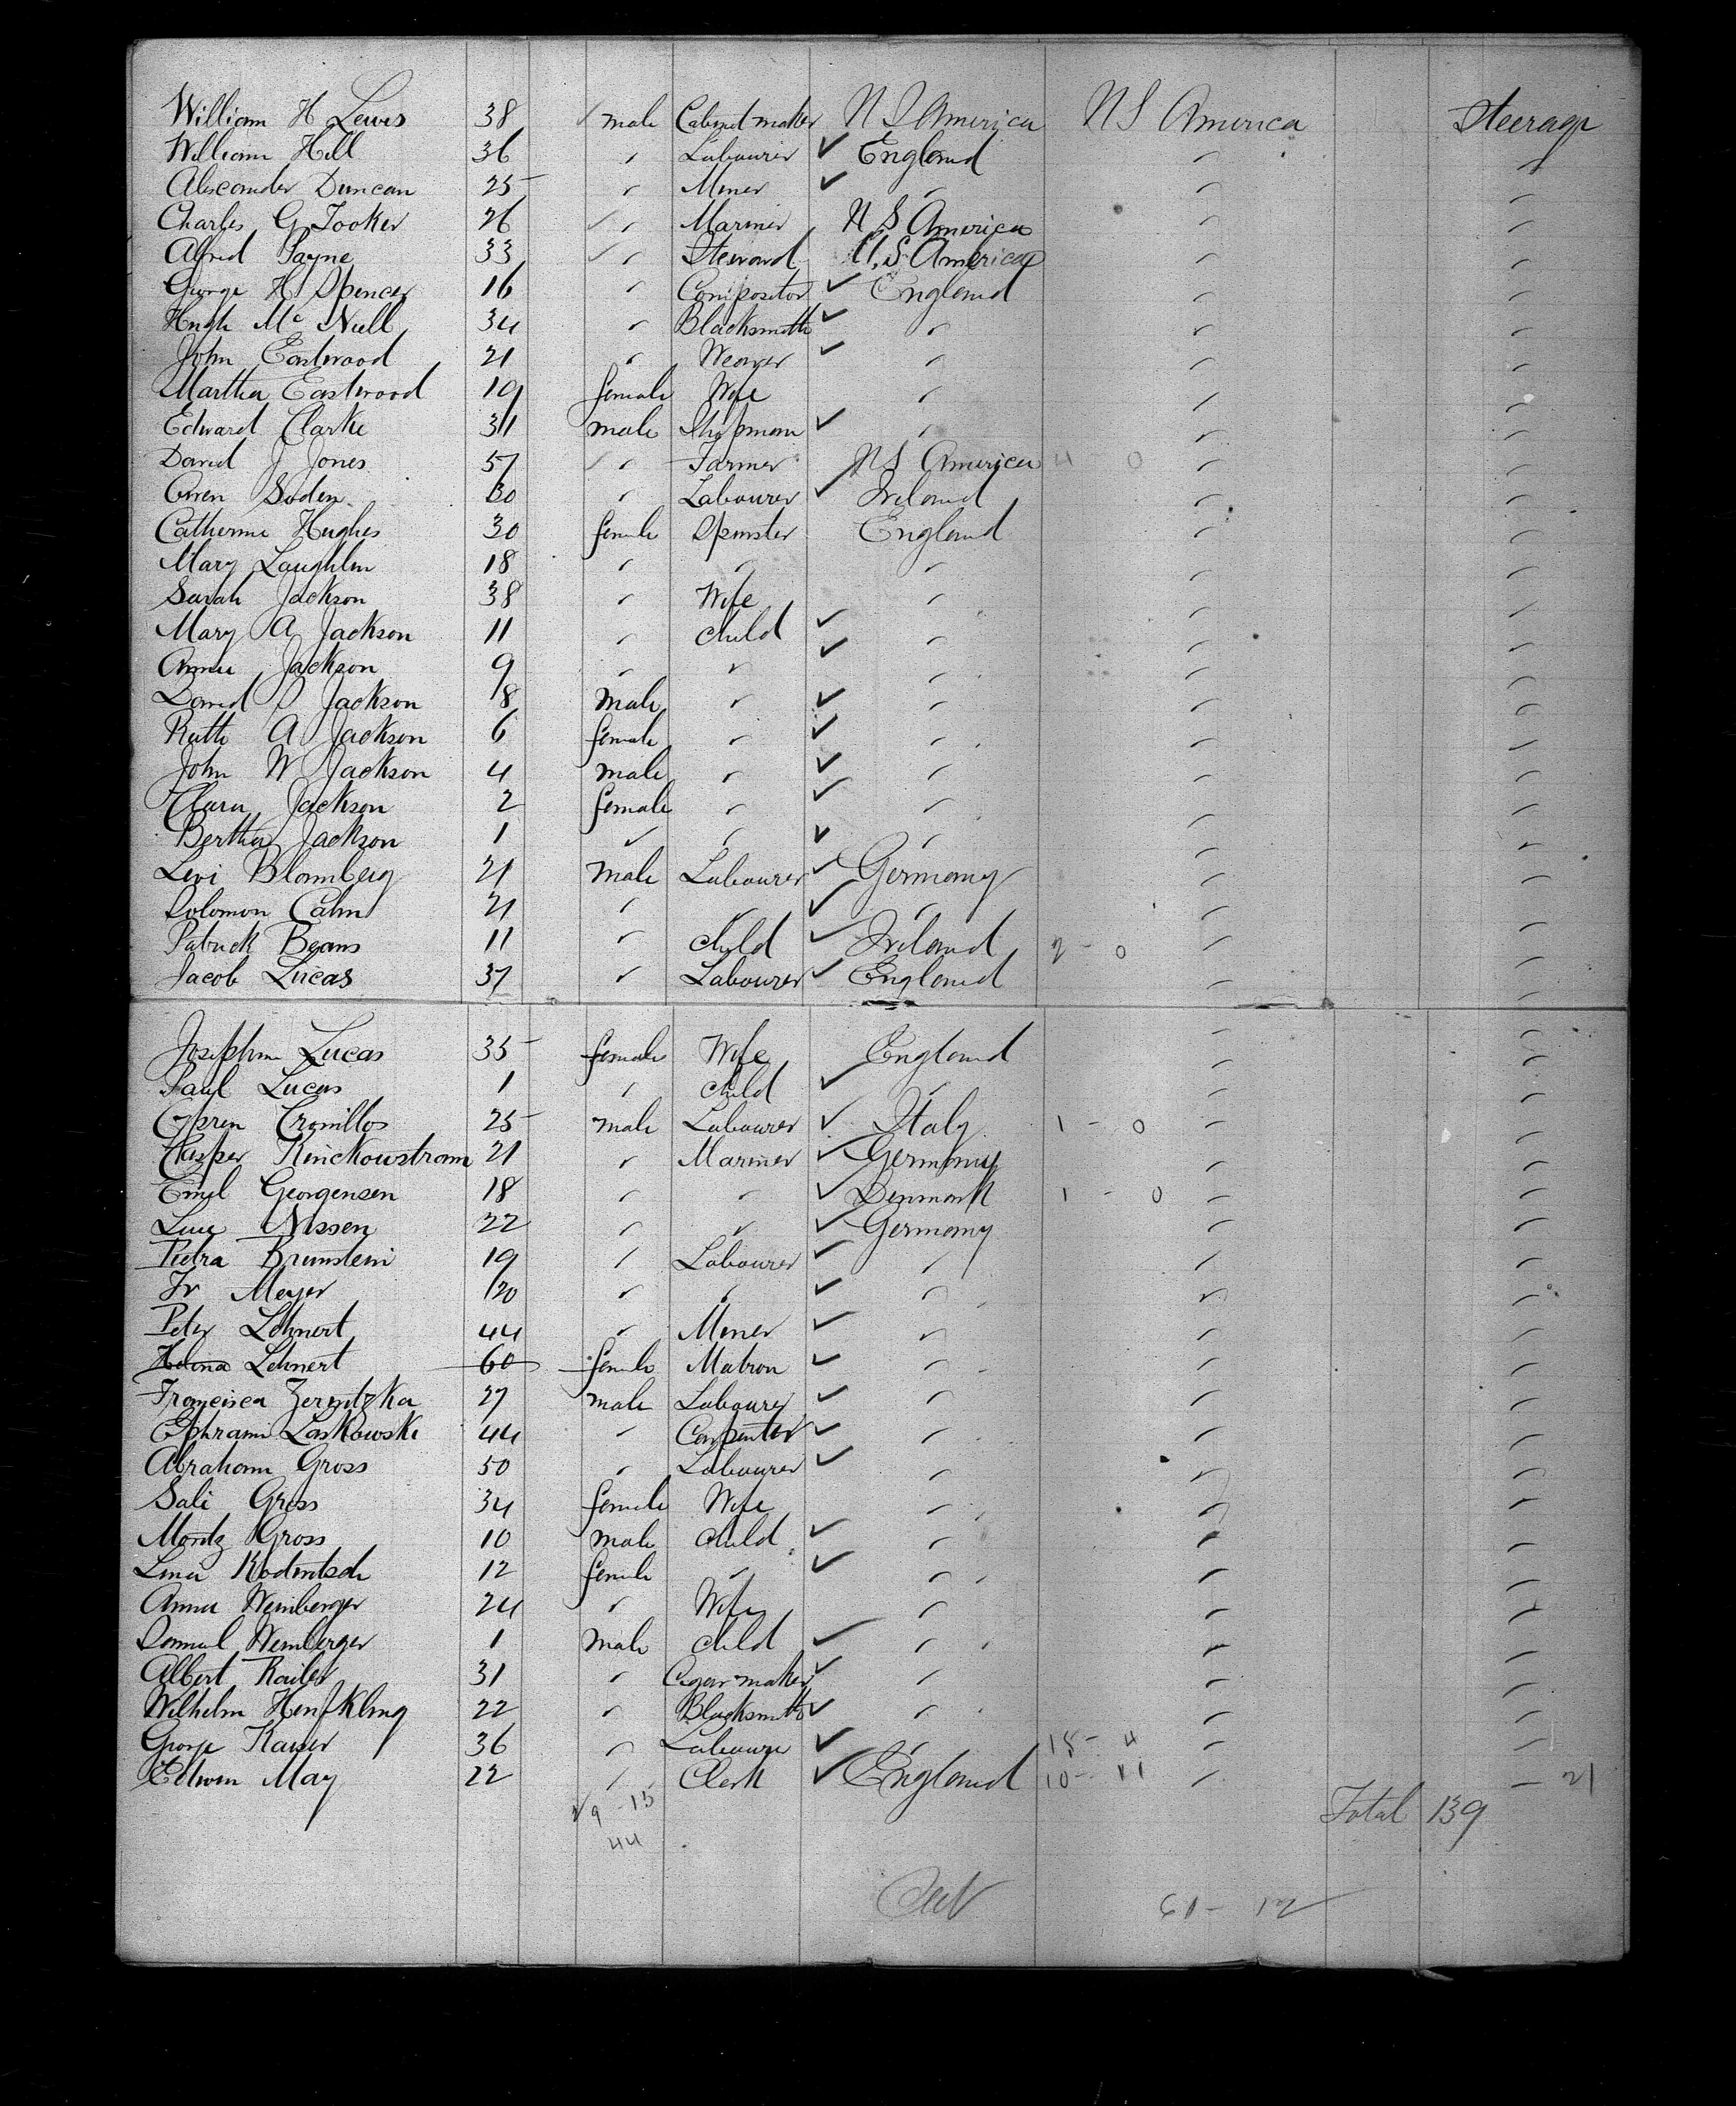 William H Lewis 38 male Cabinet maker U S America U S America Steerage
William Hill 36 " Labourer ✓ England " "
Alexander Duncan 25 " Miner ✓ " " "
Charles G Tooker 26 " Mariner U S America " "
Alfred Payne 33 " Steward U.S. America " "
George H Spencer 16 " Compositor ✓ England " "
Hugh Mc Neill 34 " Blacksmith ✓ " " "
John Eastwood 21 " Weaver ✓ " " "
Martha Eastwood 19 female Wife " " "
Edward Clarke 31 male Shopman ✓ " " "
David J Jones 57 " Farmer U S America 4 - 0 " "
Owen Soden 30 " Labourer ✓ Ireland " "
Catherine Hughes 30 female Spinster England " "
Mary Laughlin 18 " " " " "
Sarah Jackson 38 " Wife " " "
Mary A Jackson 11 " child ✓ " " "
Annie Jackson 9 " " ✓ " " "
David S Jackson 8 male " ✓ " " "
Ruth A Jackson 6 female " ✓ " " "
John W Jackson 4 male " ✓ " " "
Clara Jackson 2 female " ✓ " " "
Bertha Jackson 1 " " ✓ " " "
Levi Blomberg 21 male Labourer ✓ Germany " "
Solomon Cahn 21 " " ✓ " " "
Patrick Beans 11 " child ✓ Ireland 2 - 0 " "
Jacob Lucas 37 " Labourer ✓ England " "
Josephine Lucas 35 female Wife England " "
Paul Lucas 1 " child ✓ " " "
25 male Labourer ✓ Italy 1 - 0 " "
Casper Kinckowstrom 21 " Mariner ✓ Germany " "
Emil Georgensen 18 " " ✓ Denmark 1 - 0 " "
Nissen 22 " " ✓ Germany " "
Pietra Brunstein 19 " Labourer ✓ " " "
Fr Meyer 20 " " ✓ " " "
Peter Lehnert 44 " Miner ✓ " " "
Helena Lehnert 60 female Matron ✓ " " "
Francisca Zernitzka 27 male Labourer ✓ " " "
Ephraim Laskowski 44 " Carpenter ✓ " " "
Abraham Gross 50 " Labourer ✓ " " "
Sali Gross 34 female Wife " " "
Moritz Gross 10 male child ✓ " " "
Lina 12 female " ✓ " " "
Anna Weinberger 24 " Wife " " "
Weinberger 1 male child ✓ " " "
Albert 31 " Cigar maker ✓ " " "
Wilhelm 22 " Blacksmith ✓ " " "
George Kaiser 36 " Labourer ✓ " 18 - 4 " "
Edwin May 22 " Clerk ✓ England 10 - 11 " " 21
29 - 15 Total 139
44
61 - 12